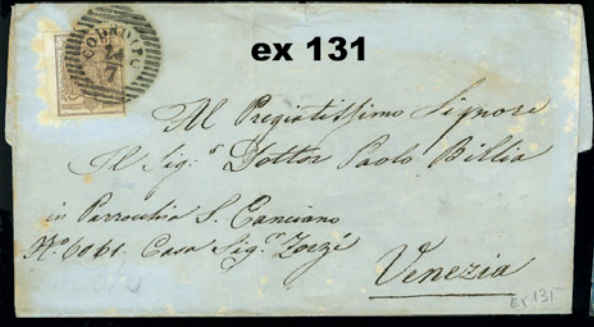 ex 131
CODROIPO
24
7
Al Pregiatissimo Signore
Il Sig.r Dottor Paolo Billia
in Parrocchia S. Canciano
N.o 6061. Casa Sig.r Zorzi
Venezia
Ex 131